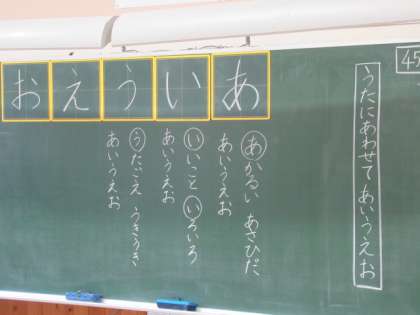 45
うたにあわせて あいうえお
あ
い
う
え
お
あかるい あさひだ
あいうえお
いいこと いろいろ
あいうえお
うたごえ うきうき
あいうえお